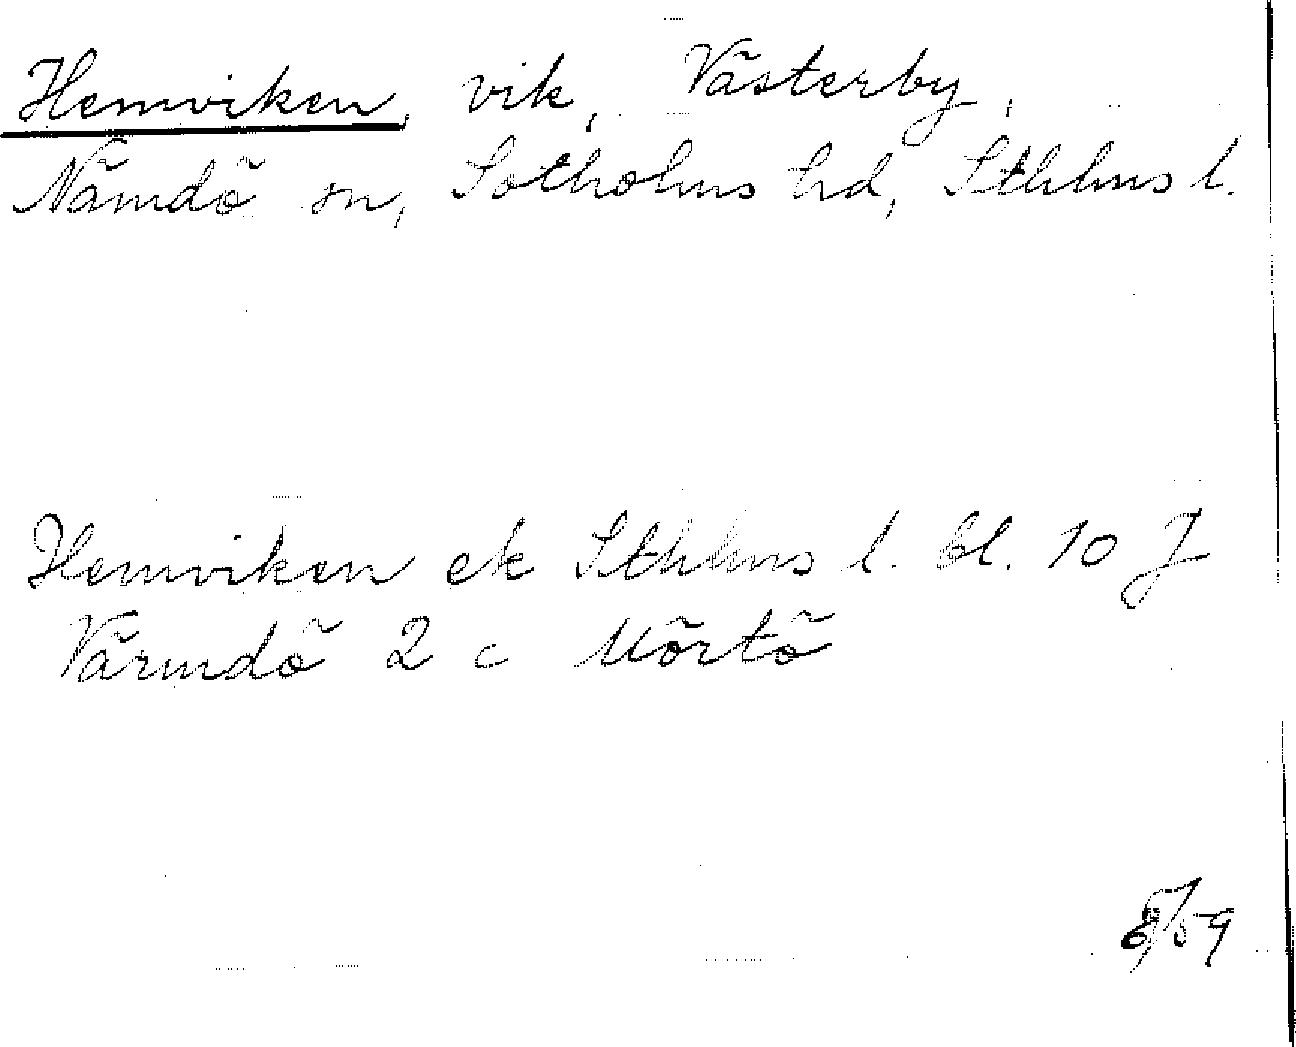 Hemviken, vik, Västerby,
Nämdö sn, Sotholms hd, Sthlms l.
Hemviken ek Sthlms l. bl. 10 J
Värmdö 2 c Mörtö